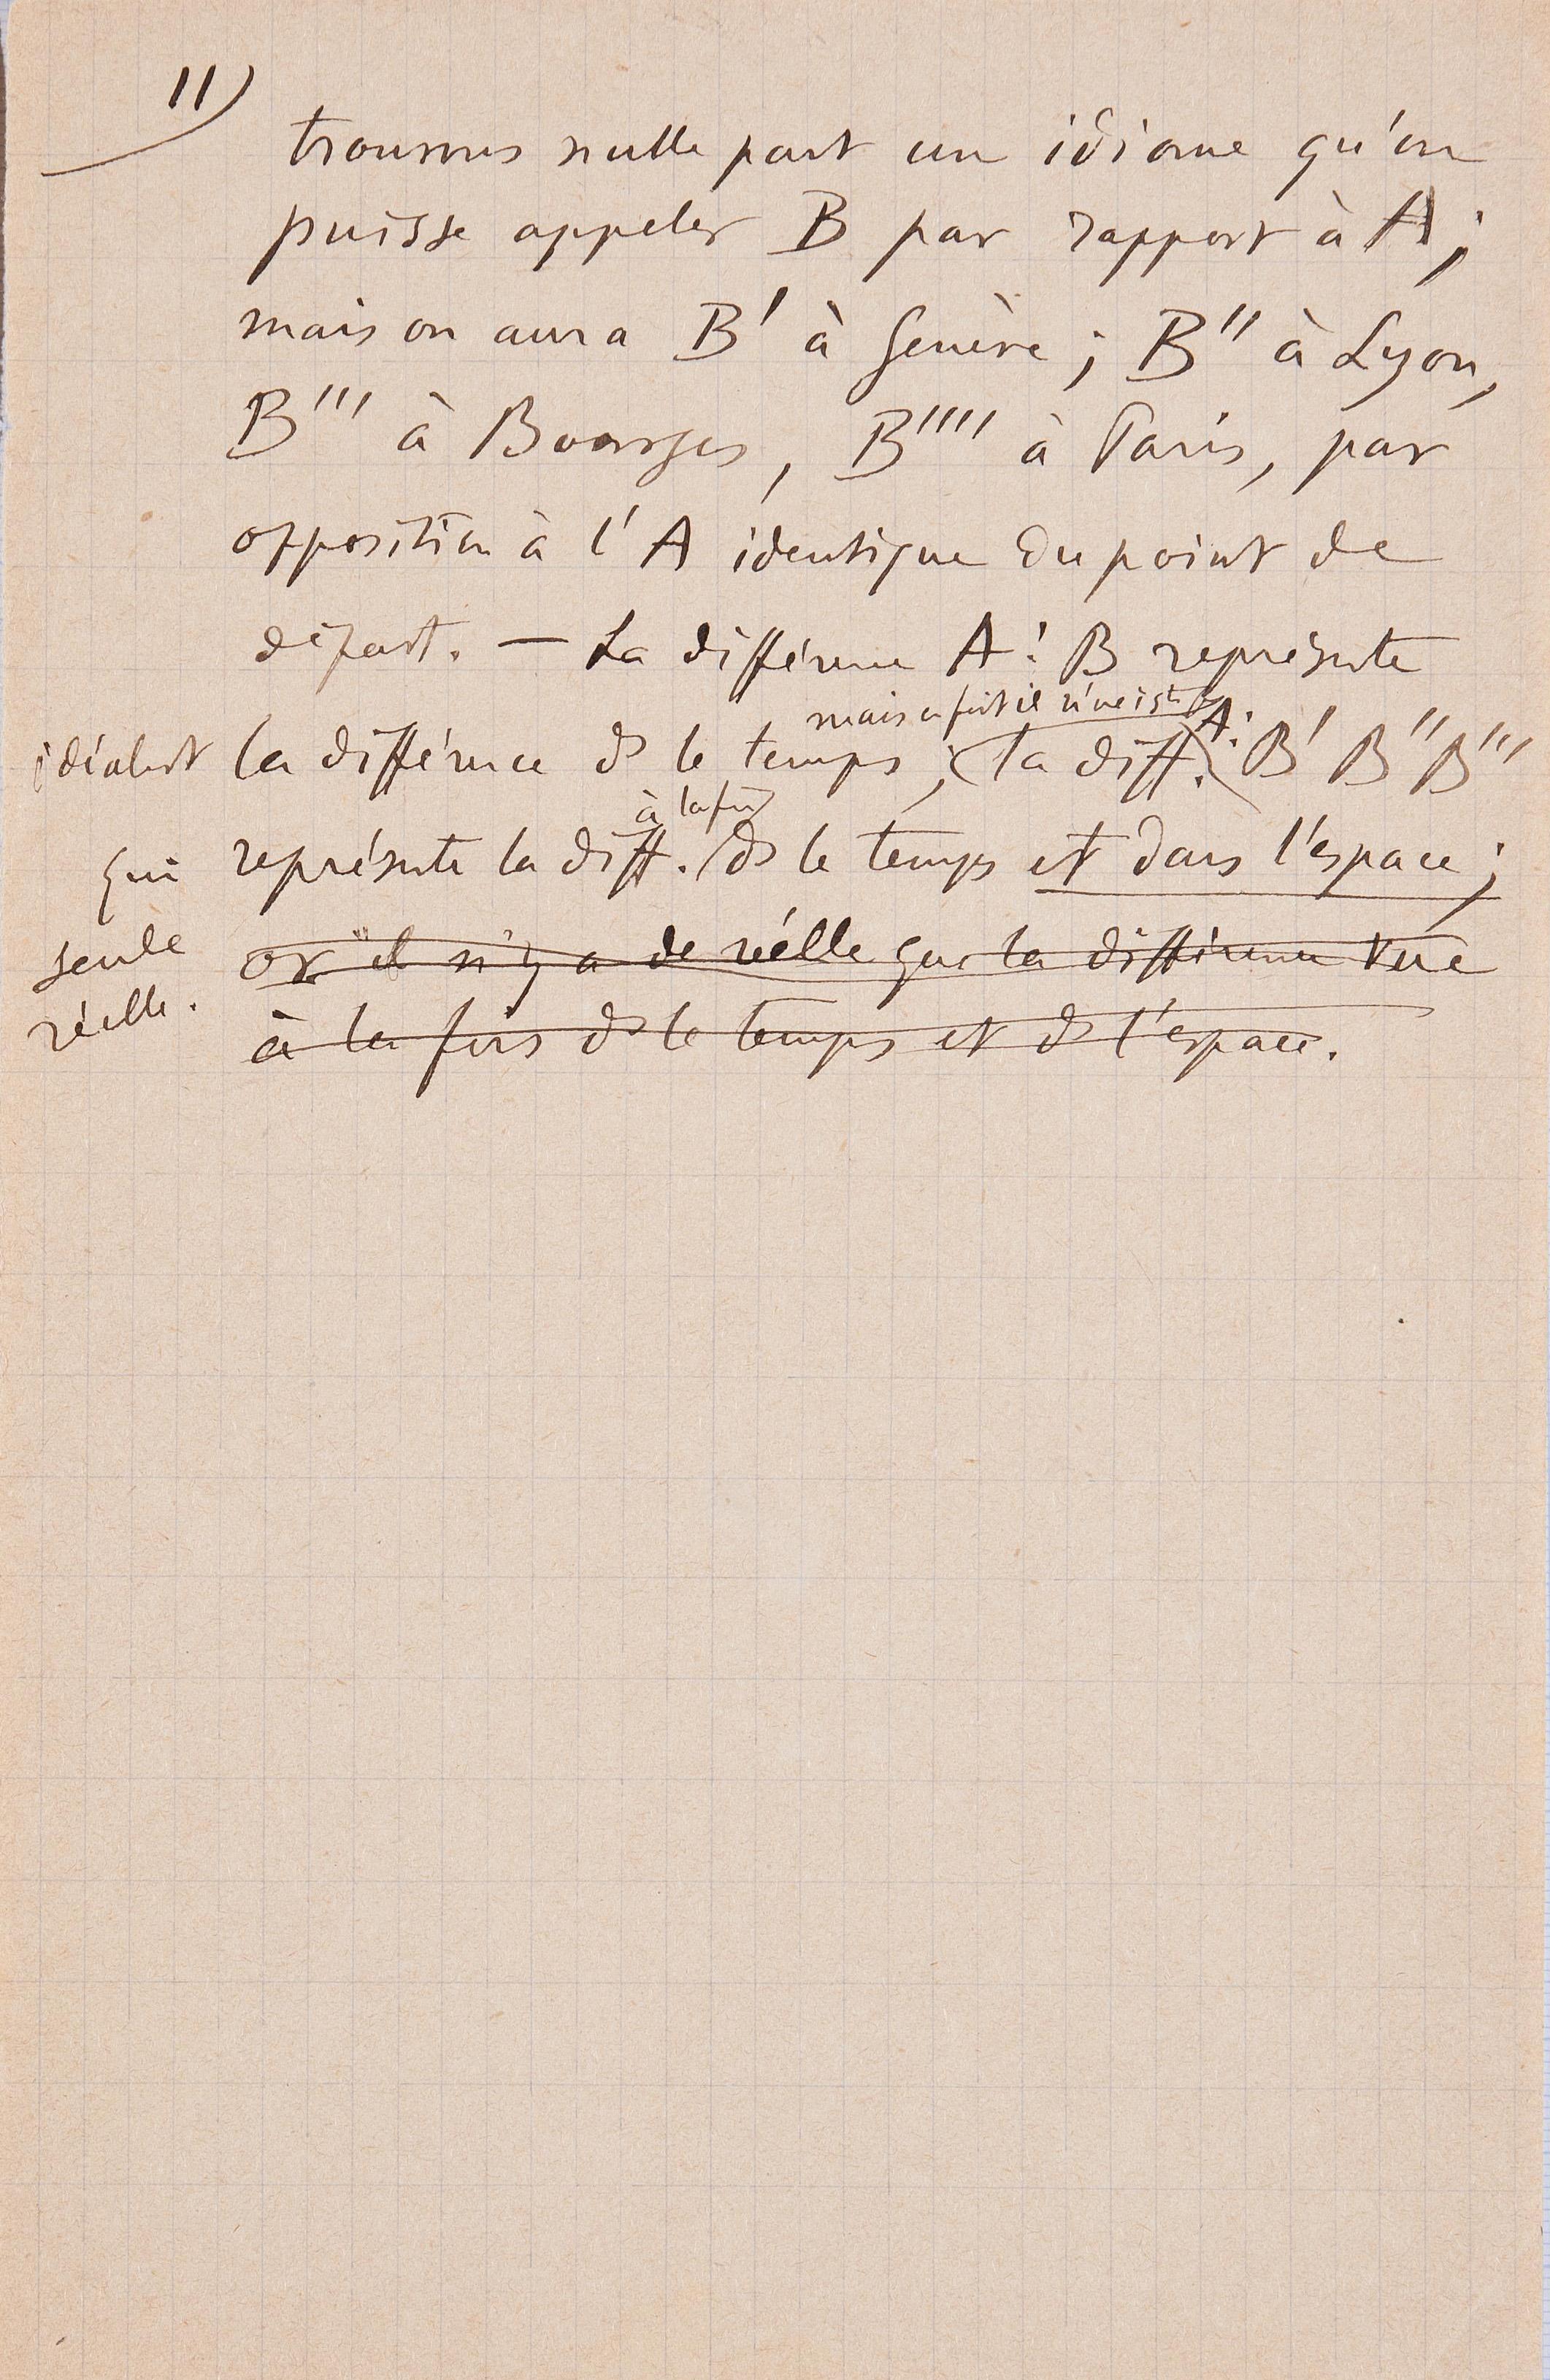 11)
trouvons nulle part un idiome qu'on
puisse appeler B par rapport à A ;
mais on aura B' à Genève ; B'' à Lyon,
B''' à Bourges, B'''' à Paris, par
opposition à l'A identique du point de
départ. — La différence A : B représente
mais en fait il n'existe
idéalemt la différence ds le temps ; (la diff. A: B' B'' B'''
à la fois
représente la diff. ds le temps et dans l'espace ;
qui
seule
réelle.
or il n'y a de réelle que la différence vue
à la fois ds le temps et ds l'espace.